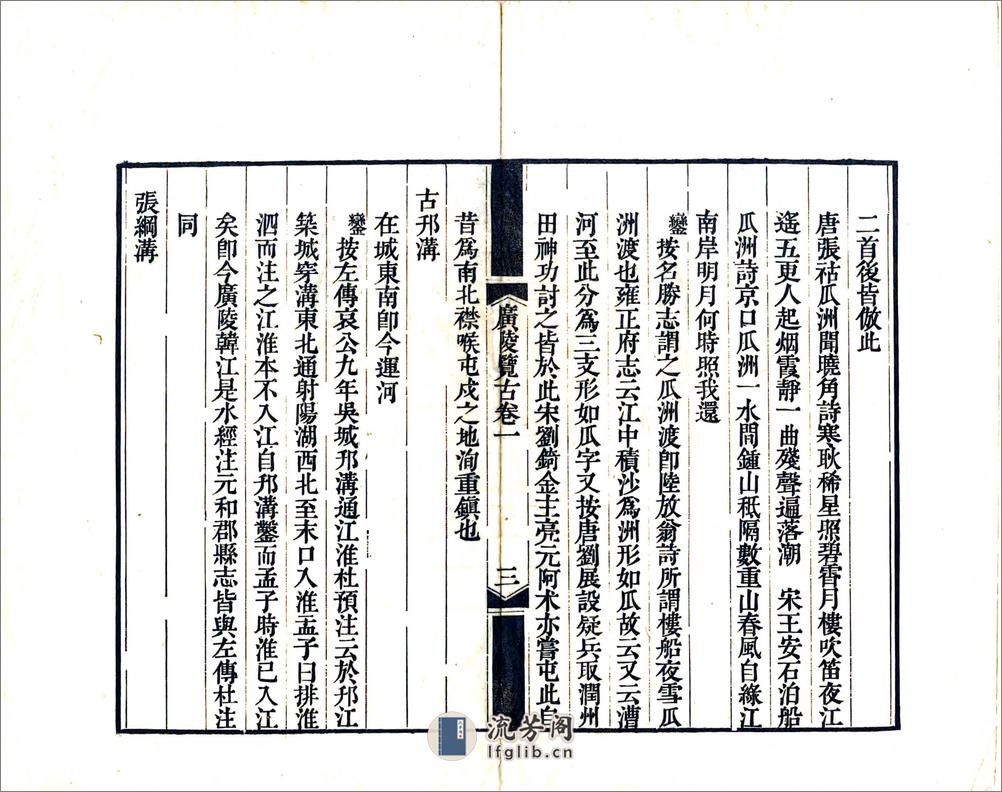 二首後皆倣此
唐張祜瓜洲聞曉角詩寒耿稀星照碧霄月樓吹笛夜江
遙五更人起烟霞靜一曲殘聲遍落潮　宋王安石泊船
瓜洲詩京口瓜洲一水間鍾山秪隔數重山春風自緣江
南岸明月何時照我還
鑾按名勝志謂之瓜洲渡卽陸放翁詩所謂樓船夜雪瓜
洲渡也雍正府志云江中積沙爲洲形如瓜故云又云漕
河至此分爲三支形如瓜字又按唐劉展設疑兵取潤州
田神功討之皆於此宋劉錡金主亮元阿术亦嘗屯此自
廣陵覽古卷一
三
昔爲南北襟喉屯戍之地洵重鎮也
古邗溝
在城東南卽今運河
鑾按左傳哀公九年吳城邗溝通江淮杜預注云於邗江
築城穿溝東北通射陽湖西北至末口入淮孟子曰排淮
泗而注之江淮本不入江自邗溝鑿而孟子時淮已入江
矣卽今廣陵韓江是水經注元和郡縣志皆與左傳杜注
同
張綱溝
流芳阁
lfglib.cn